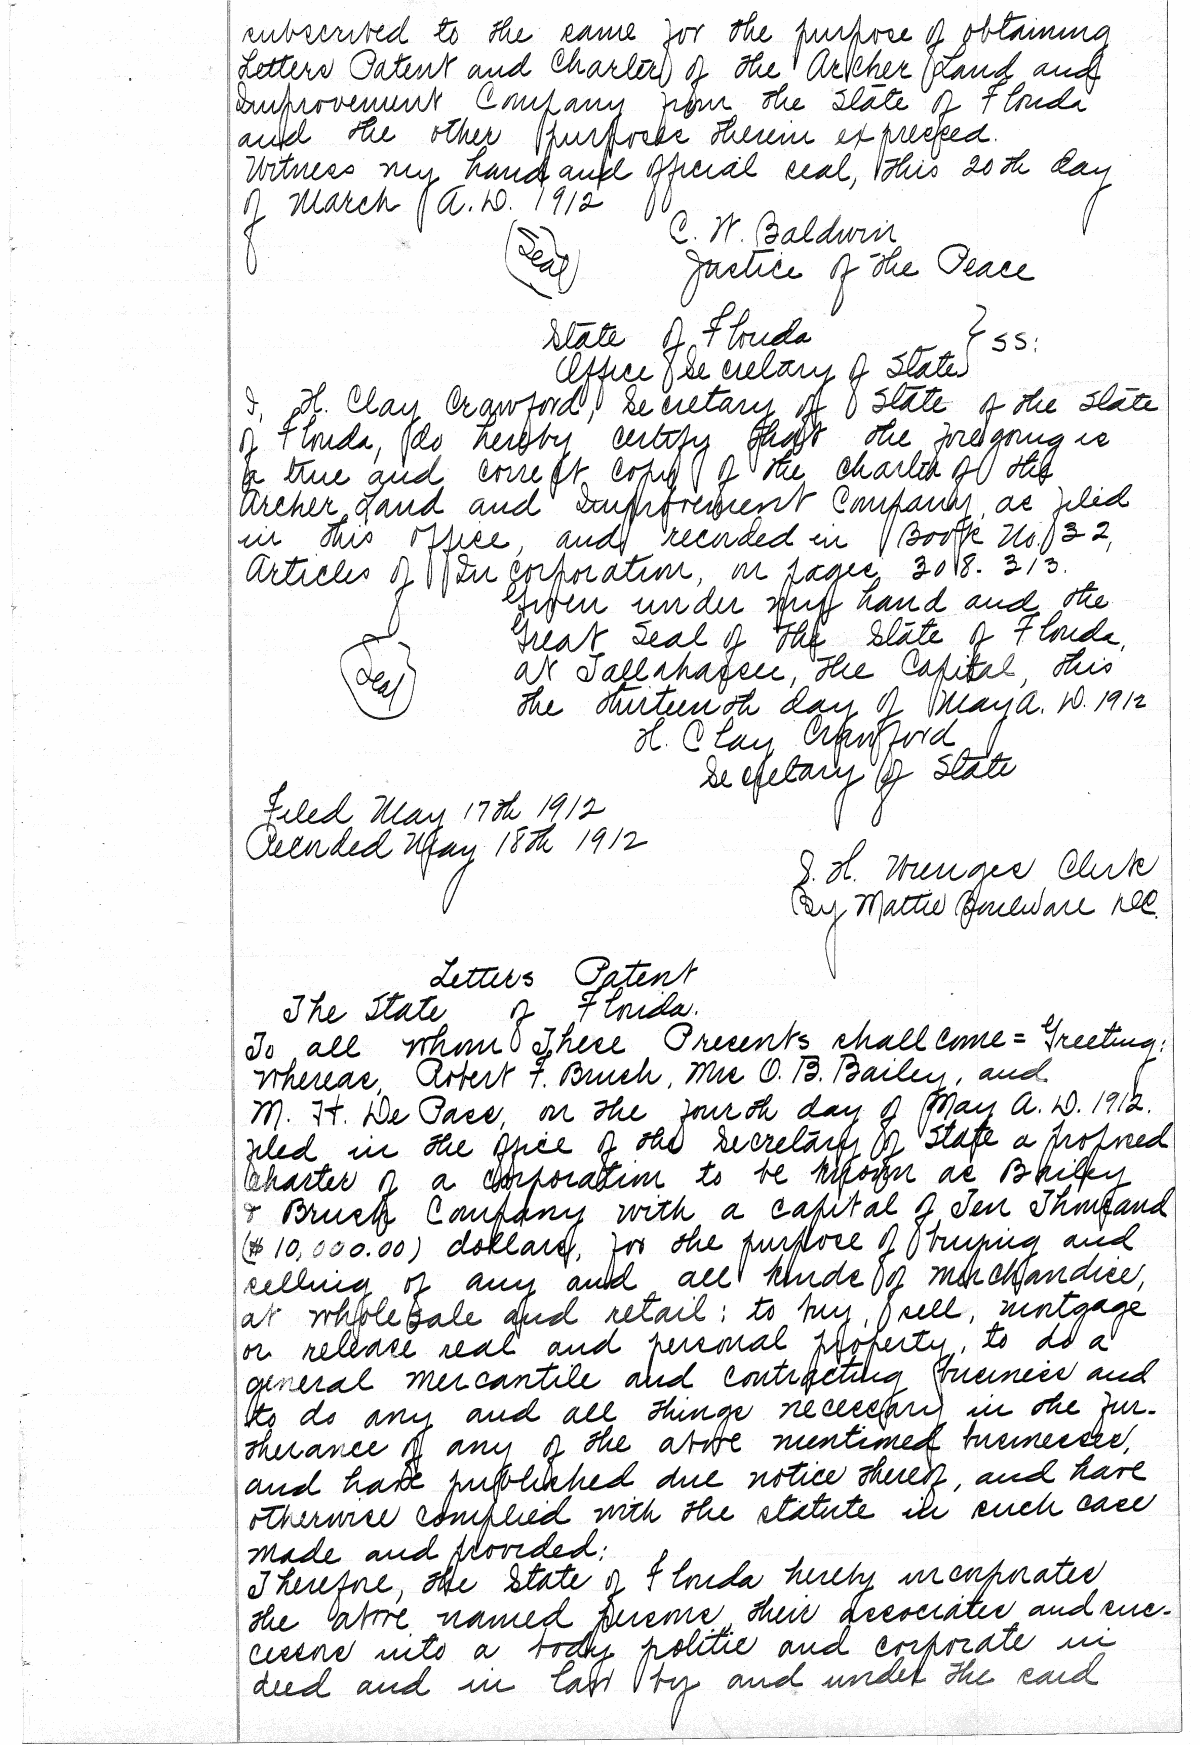 subscribed to the same for the purpose of obtaining
Letters Patent and Charter of the Archer Land and
Improvement Company from the State of Florida
and the other purposes therein expressed.
Witness my hand and official seal, this 20th day
of March A.D. 1912
C. W. Baldwin
(Seal)
Justice of the Peace
State of Florida } ss:
Office Secretary of State
I, H. Clay Crawford, Secretary of State of the State
of Florida, do hereby certify that the foregoing is
a true and correct copy of the charter of the
Archer Land and Improvement Company, as filed
in this office, and recorded in Book No. 32,
Articles of Incorporation, on pages 308. 313.
Given under my hand and the
Great Seal of the State of Florida,
(Seal)
at Tallahassee, the Capital, this
the thirteenth day of May A. D. 1912
H. Clay Crawford
Secretary of State
Filed May 17th 1912
Recorded May 18th 1912
S. H. Wienges Clerk
By Mattie Bouleware D.C.
Letters Patent
The State of Florida.
To all whom These Presents shall come = Greeting:
Whereas, Robert F. Bruch, Mrs O. B. Bailey, and
M. H. De Pass, on the fourth day of May A. D. 1912.
filed in the office of the Secretary of State a proposed
Charter of a corporation to be known as Bailey
& Bruch Company with a capital of Ten Thousand
($10,000.00) dollars, for the purpose of buying and
selling of any and all kinds of merchandise,
at wholesale and retail: to buy, sell, mortgage
or release real and personal property, to do a
general mercantile and contracting business and
to do any and all things necessary in the fur-
therance of any of the above mentioned businesses,
and have published due notice thereof, and have
otherwise complied with the statute in such case
made and provided:
Therefore, the State of Florida hereby incorporates
the above named persons, their associates and suc-
cessors into a body politic and corporate in
deed and in law by and under the said